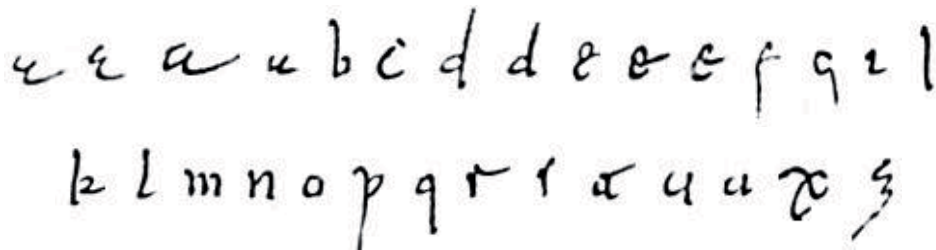 a a a a b c d d e e e f g i l
k l m n o p q r r t u u x z